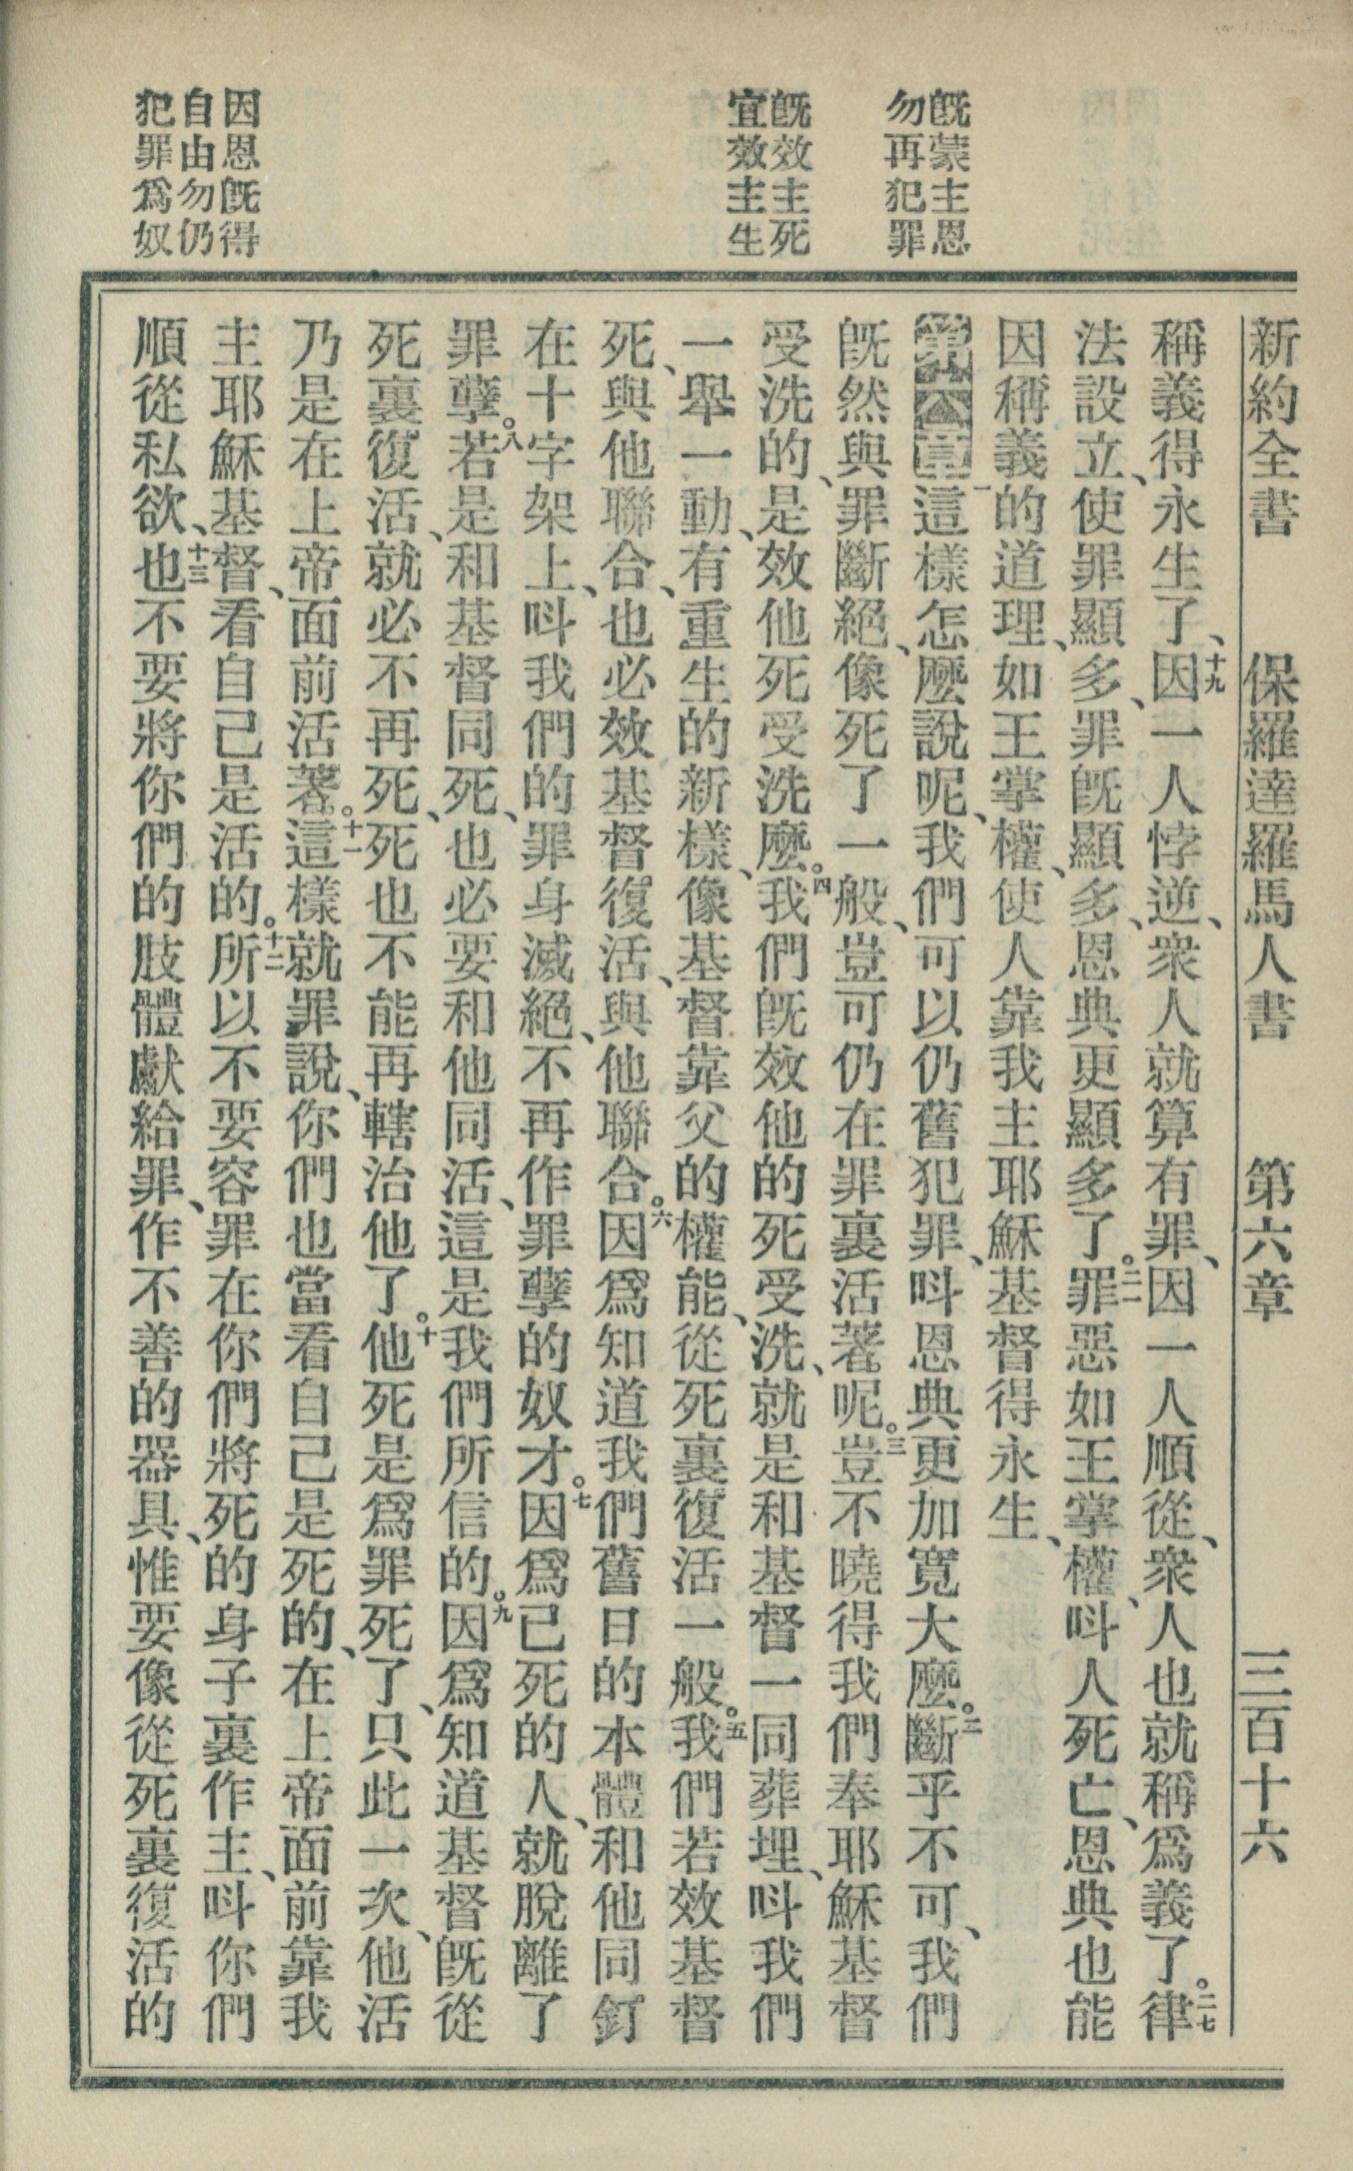 既蒙主恩
勿再犯罪
既效主死
宜效主生
因恩既得
自由勿仍
犯罪爲奴
新約全書 保羅達羅馬人書 第六章 三百十六
稱義得永生了、十九因一人悖逆、衆人就算有罪、因一人順從、衆人也就稱爲義了。二十律
法設立、使罪顯多、罪既顯多、恩典更顯多了。二一罪惡如王掌權、呌人死亡、恩典也能
因稱義的道理、如王掌權、使人靠我主耶穌基督得永生、
第六章一這樣怎麽說呢、我們可以仍舊犯罪、呌恩典更加寬大麽。二斷乎不可、我們
既然與罪斷絕、像死了一般、豈可仍在罪裏活著呢。三豈不曉得我們奉耶穌基督
受洗的、是效他死受洗麽。四我們既效他的死受洗、就是和基督一同葬埋、呌我們
一舉一動、有重生的新樣、像基督靠父的權能、從死裏復活一般。五我們若效基督
死、與他聯合、也必效基督復活、與他聯合。六因爲知道我們舊日的本體和他同釘
在十字架上、呌我們的罪身滅絕、不再作罪孽的奴才。七因爲已死的人、就脫離了
罪孽。八若是和基督同死、也必要和他同活、這是我們所信的。九因爲知道基督既從
死裏復活、就必不再死、死也不能再轄治他了。十他死是爲罪死了、只此一次、他活
乃是在上帝面前活著。十一這樣就罪說、你們也當看自己是死的、在上帝面前靠我
主耶穌基督、看自己是活的。十二所以不要容罪在你們將死的身子裏作主、呌你們
順從私欲、十三也不要將你們的肢體獻給罪、作不善的器具、惟要像從死裏復活的